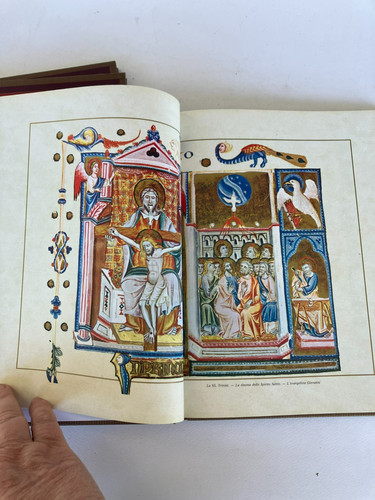 O
La SS. Trinità. — La discesa dello Spirito Santo. — L'evangelista Giovanni